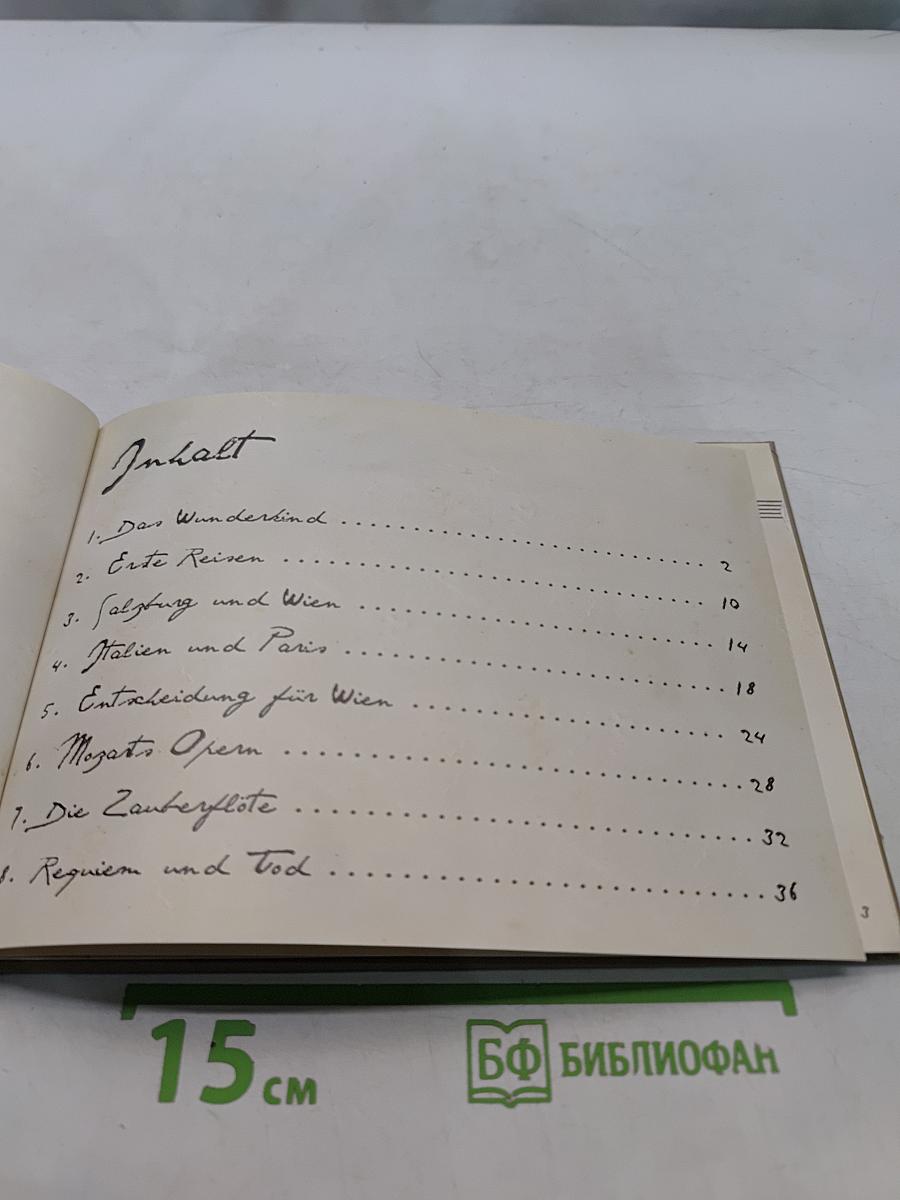 Inhalt
1. Das Wunderkind .......... 2
2. Erste Reisen .......... 10
3. Salzburg und Wien .......... 14
4. Italien und Paris .......... 18
5. Entscheidung für Wien .......... 24
6. Mozarts Opern .......... 28
7. Die Zauberflöte .......... 32
8. Requiem und Tod .......... 36
3
15 см БФ БИБЛИОФАН